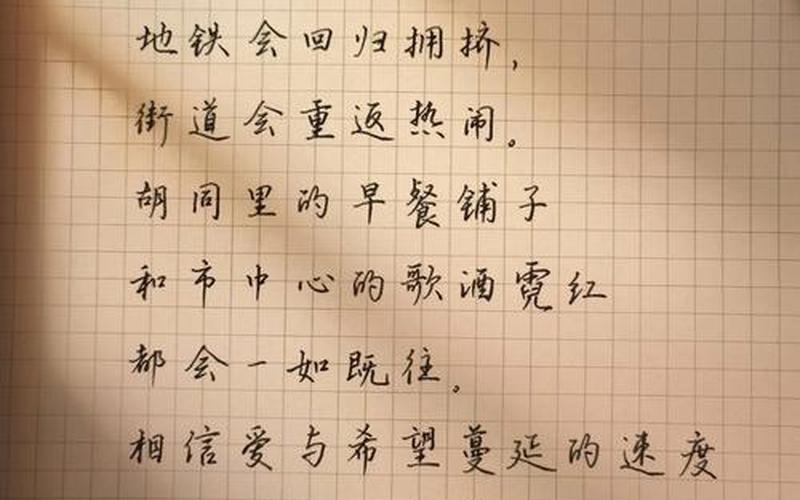 地铁会回归拥挤，
街道会重返热闹。
胡同里的早餐铺子
和市中心的歌酒霓红
都会一如既往。
相信爱与希望蔓延的速度